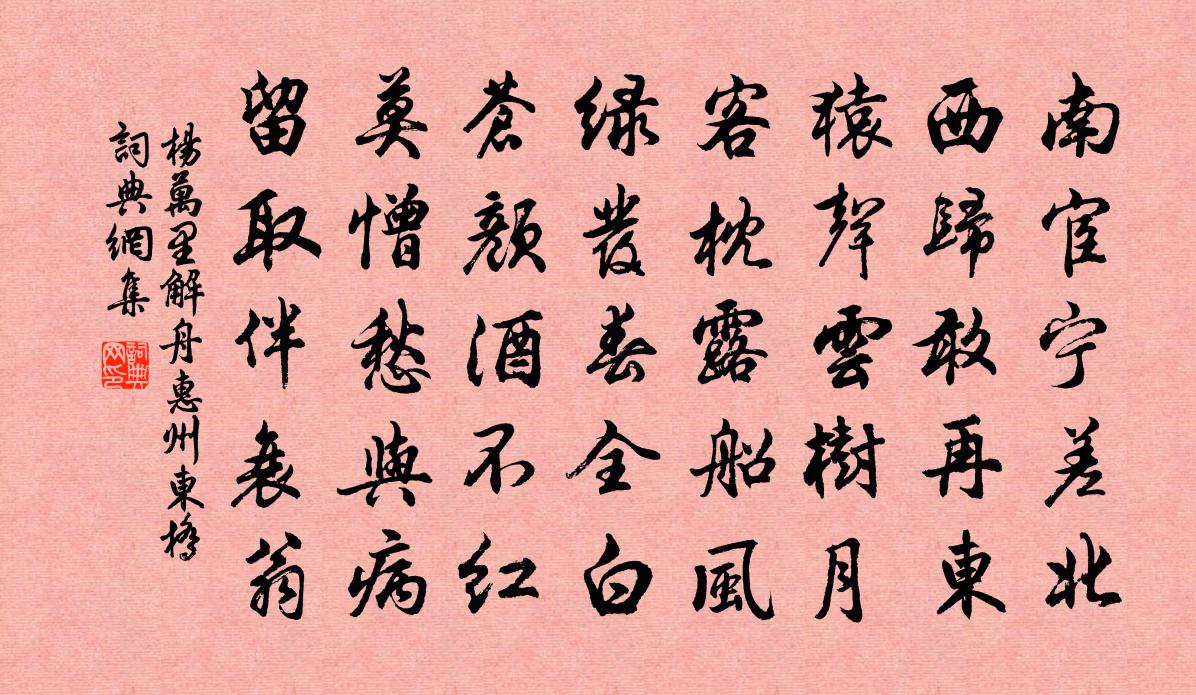 南宦宁差北
西歸敢再東
猿聲雲樹月
客枕露船風
緑發春全白
蒼顔酒不红
莫憎愁與病
留取伴衰翁
楊萬里解舟惠州東橋
詞典網集
詞典網印